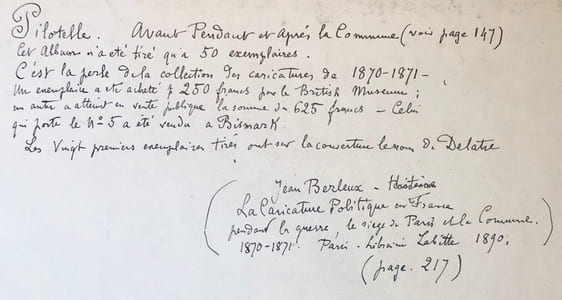 Pilotelle. Avant Pendant et Après la Commune (voir page 147)
Cet Album n'a été tiré qu'a 50 exemplaires.
C'est la perle de la collection des caricatures de 1870-1871 -
Un exemplaire a été acheté p 250 francs par le British Museum ;
un autre a atteint en vente publique la somme de 625 francs - Celui
qui porte le No 5 a été vendu a Bismark.
Les Vingt premiers exemplaires tirés ont sur la couverture le nom de Delatre
(Jean Berleux - Histoire
La Caricature Politique en France
pendant la guerre, le siege de Paris et la Commune.
1870-1871. Paris - Librairie Labitte 1890.
(page. 217)